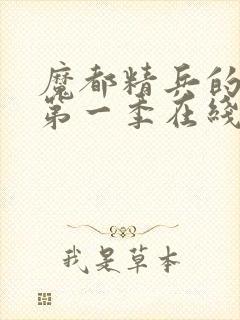 魔都精兵的
第一季在线
我是草本